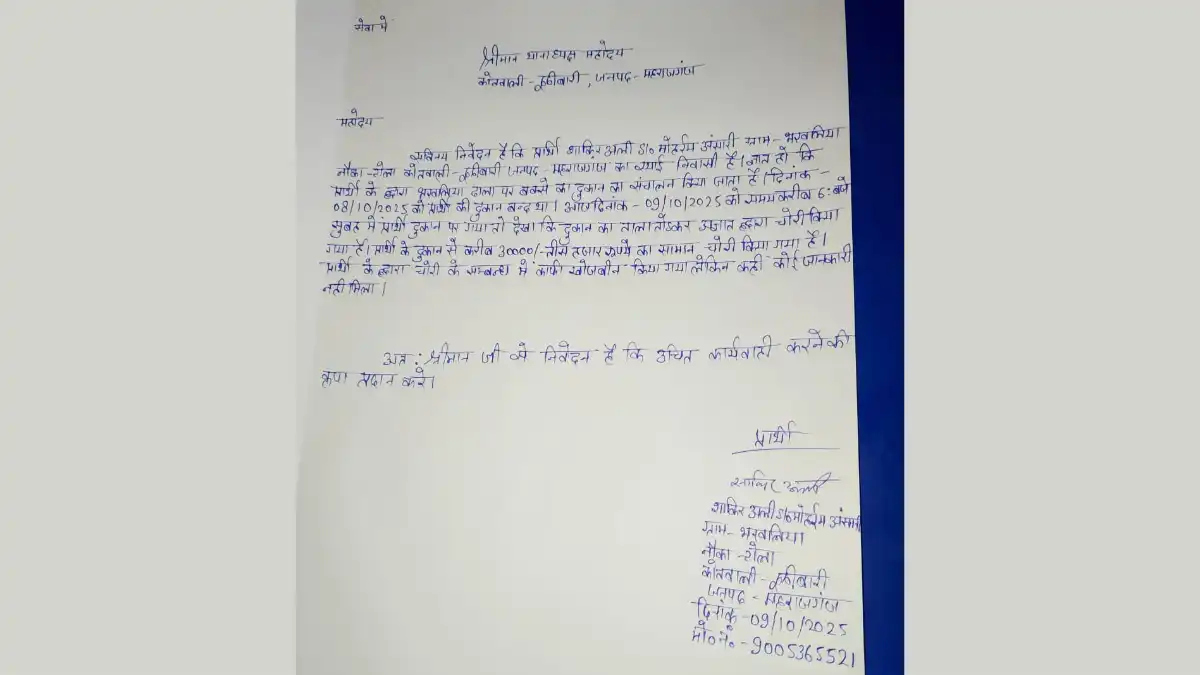 सेवा में
श्रीमान थानाध्यक्ष महोदय
कोतवाली - कूठीबारी, जनपद - महराजगंज
महोदय
सविनय निवेदन है कि प्रार्थी शाकिर अली S/o मोहर्रम अंसारी ग्राम - भरवलिया
नौका - टोला कोतवाली - कूठीबारी जनपद - महराजगंज का स्थाई निवासी है। ज्ञात हो कि
प्रार्थी के द्वारा भरवलिया ढाला पर बक्से का दुकान का संचालन किया जाता है। दिनांक -
08/10/2025 को प्रार्थी की दुकान बन्द था। आज दिनांक - 09/10/2025 को समय करीब 6:बजे
सुबह में प्रार्थी दुकान पर गया तो देखा कि दुकान का ताला तोड़कर अज्ञात द्वारा चोरी किया
गया है। प्रार्थी के दुकान से करीब 30000/- तीस हजार रूपये का सामान चोरी किया गया है।
प्रार्थी के द्वारा चोरी के सम्बन्ध में काफी खोजबीन किया गया लेकिन कही कोई जानकारी
नही मिला।
अत: श्रीमान जी से निवेदन है कि उचित कार्यवाही करने की
कृपा प्रदान करे।
प्रार्थी
साकिर अली
शाकिर अली S/o मोहर्रम अंसारी
ग्राम - भरवलिया
नौका - टोला
कोतवाली - कूठीबारी
जनपद - महराजगंज
दिनांक - 09/10/2025
मो०न० - 9005365521